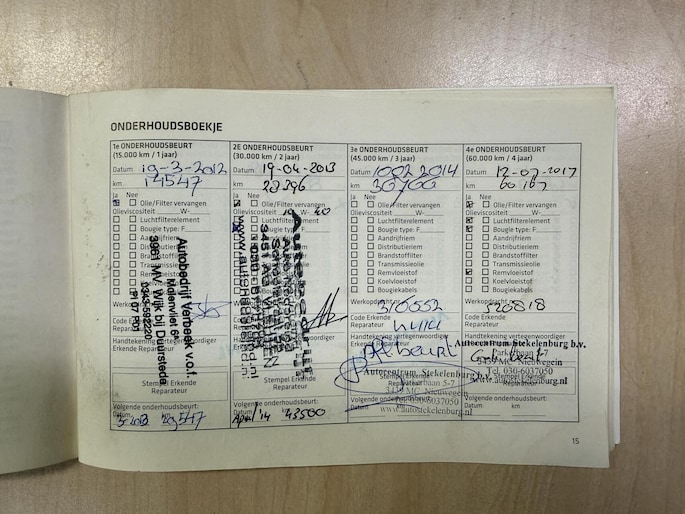 ONDERHOUDSBOEKJE
1e ONDERHOUDSBEURT
(15.000 km / 1 jaar)
Datum 19-3-2012
km 14547
Ja Nee
Olie/Filter vervangen
Olieviscositeit W-
Luchtfilterelement
Bougie type: F
Aandrijfriem
Distributieriem
Brandstoffilter
Transmissieolie
Remvloeistof
Koelvloeistof
Bougiekabels
Werkopdracht
Code Erkende
Reparateur
Handtekening vertegenwoordiger
Erkende Reparateur
Autobedrijf Verbeek v.o.f.
Molenvliet 6a
3961 MV Wijk bij Duurstede
0343-592220
Stempel Erkende
Reparateur
Volgende onderhoudsbeurt:
Datum km
3-2013 29547
2E ONDERHOUDSBEURT
(30.000 km / 2 jaar)
Datum 19-04-2013
km 28396
Ja Nee
Olie/Filter vervangen
Olieviscositeit W-
Stempel Erkende
Reparateur
Volgende onderhoudsbeurt:
Datum km
April '14 43500
3e ONDERHOUDSBEURT
(45.000 km / 3 jaar)
Datum 1002 2014
km 36700
Ja Nee
Olie/Filter vervangen
Olieviscositeit W-
Luchtfilterelement
Bougie type: F
Aandrijfriem
Distributieriem
Brandstoffilter
Transmissieolie
Remvloeistof
Koelvloeistof
Bougiekabels
Werkopdracht nr.
310552
Code Erkende
Reparateur
Handtekening vertegenwoordiger
Erkende Reparateur
Autocentrum Stekelenburg b.v.
Parkerbaan 5-7
3439 MC Nieuwegein
Tel. 030-6037050
www.autostekelenburg.nl
Stempel Erkende
Reparateur
Volgende onderhoudsbeurt:
Datum km
4e ONDERHOUDSBEURT
(60.000 km / 4 jaar)
Datum 12-07-2017
km 60167
Ja Nee
Olie/Filter vervangen
Olieviscositeit W-
Luchtfilterelement
Bougie type: F
Aandrijfriem
Distributieriem
Brandstoffilter
Transmissieolie
Remvloeistof
Koelvloeistof
Bougiekabels
Werkopdracht nr.
520818
Code Erkende
Reparateur
Handtekening vertegenwoordiger
Autocentrum Stekelenburg b.v.
Parkerbaan 5-7
3439 MC Nieuwegein
Tel. 030-6037050
www.autostekelenburg.nl
Stempel Erkende
Reparateur
Volgende onderhoudsbeurt:
Datum km
15